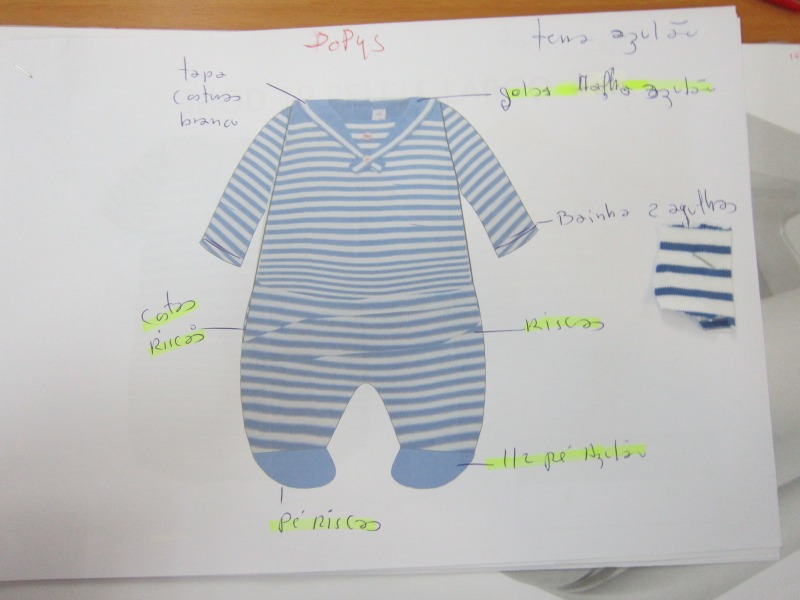 DOPYS
tema azulão
tapa
costuras
branco
golas Malha azulão
Bainha 2 agulhas
Costas
Riscas
Riscas
1/2 pé Azulão
Pé Riscas